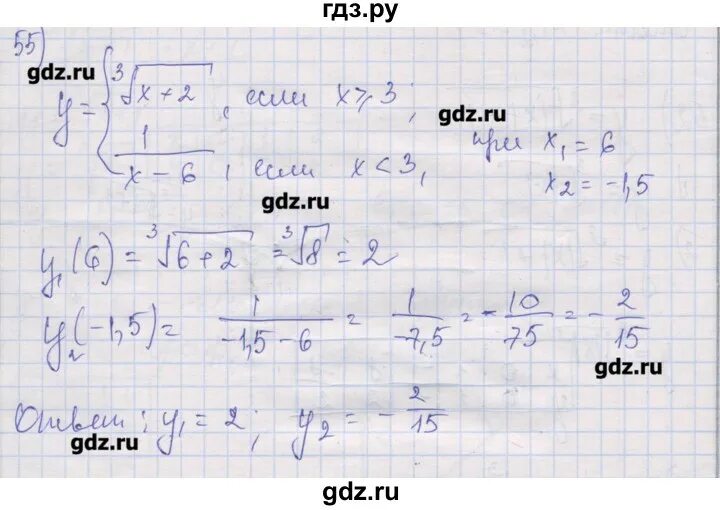 гдз.ру
55)
gdz.ru
y = { ∛(x + 2), если x ⩾ 3;
gdz.ru
1/(x − 6), если x < 3,
при x₁ = 6
x₂ = −1,5
gdz.ru
y₁(6) = ∛(6+2) = ∛8 = 2
y₂(−1,5) = 1/(−1,5 − 6) = 1/(−7,5) = − 10/75 = − 2/15
gdz.ru
Ответ: y₁ = 2; y₂ = − 2/15
gdz.ru
gdz.ru